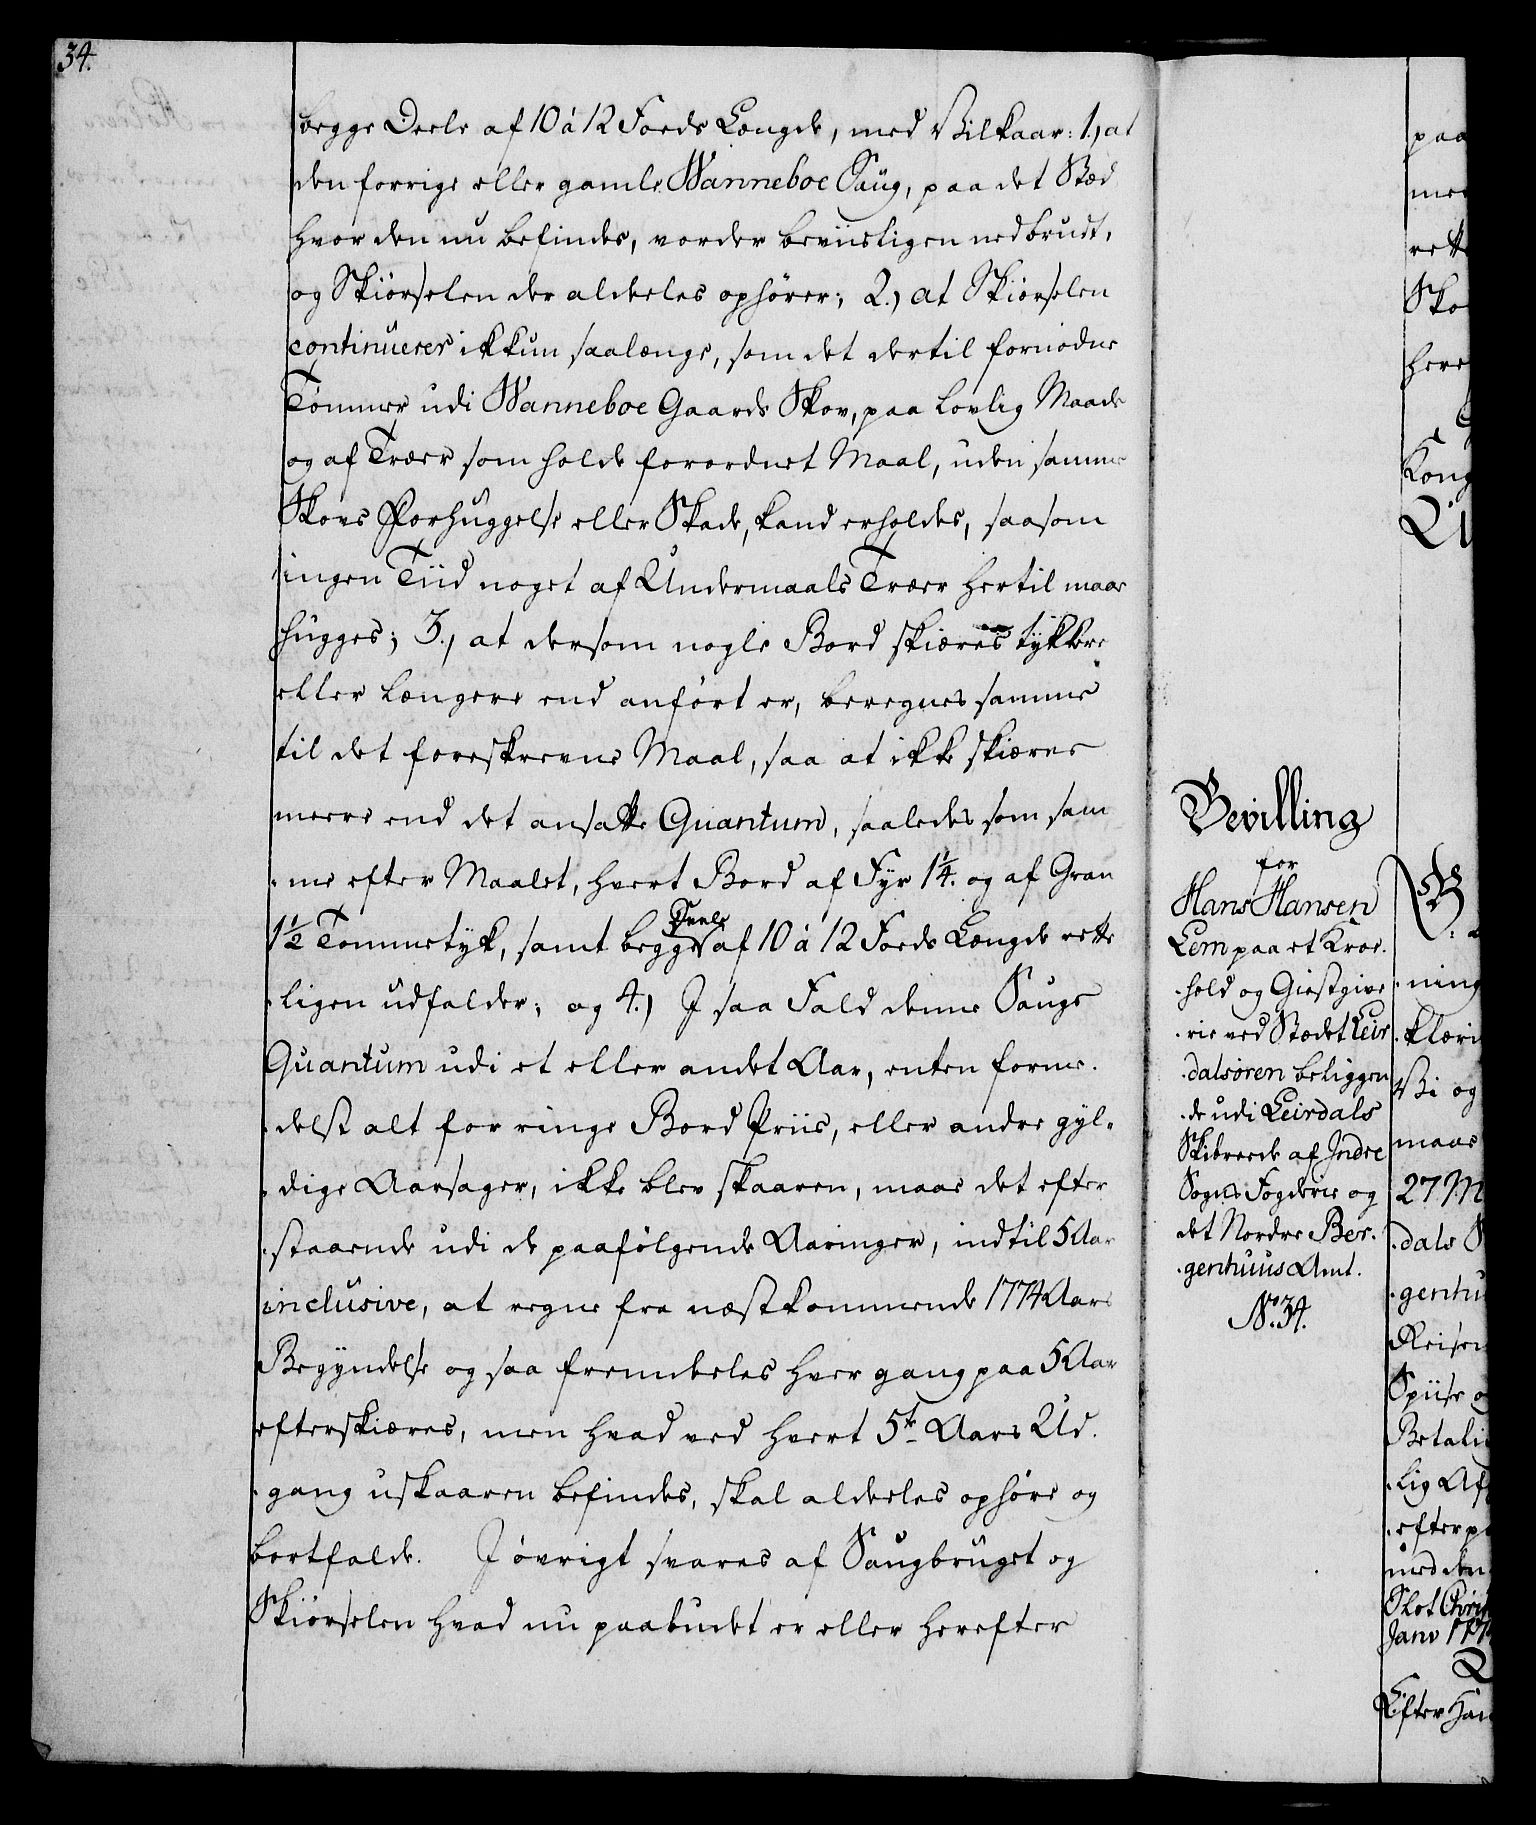 34.
begge Deele af 10 à 12 Foeds Længde, med Vilkaar: 1.) at
den forrige eller gamle Wanneboe Saug, paa det Stæd
hvor den nu befindes, vorder beviisligen nedbrudt,
og Skiørselen der aldeeles ophører; 2.) at Skiørselen
continuerer ikkun saalænge, som det dertil fornødne
Tømmer udi Wanneboe Gaards Skov, paa lovlig Maade
og af Træer som holde forordnet Maal, uden samme
Skovs Forhuggelse eller Skade, kand erholdes, saasom
ingen Tiid noget af Undermaals Træer hertil maae
hugges; 3.) at dersom nogle Bord skiæres tykkere
eller længere end anført er, beregnes samme
til det foreskrevne Maal, saa at ikke skiæres
meere end det ansatte Quantum, saaledes som sam
-me efter Maalet, hvert Bord af Fyr 1¼. og af Gran
1½ Tommetyk, samt begge Deele af 10 à 12 Foeds Længde rette
-ligen udfalder; og 4.) I saa Fald denne Saugs
Quantum udi et eller andet Aar, enten forme-
-delst alt for ringe Bord Priis, eller andre gyl-
-dige Aarsager, ikke blev skaaren, maae det efter
-staaende udi de paafølgende Aaringer, indtil 5 Aar
inclusive, at regne fra næstkommende 1774 Aars
Begyndelse og saa fremdeeles hver gang paa 5 Aar
efterskiæres, men hvad ved hvert 5te Aars Ud-
-gang uskaaren befindes, skal aldeeles ophøre og
bortfalde. I øvrigt svares af Saugbruget og
Skiørselen hvad nu paabudet er eller herefter
Bevilling
for
Hans Hansen
Lem paa et Kroe-
-hold og Giestgive
-rie ved Stædet Leir
-dalsøren beliggen
-de udi Leirdals
Skibreede af Indre
Sogns Fogderie og
det Nordre Ber-
-genhuus Amt.
No. 34.
paa
mee
rett
Sko
here
Kong
-ning
-klæri
Vi og
maae
27 M
-dals S
-genhu
Reisen
Spiise o
Betali
-lig Af
-efter p
med den
Slot Chri
Janv 177
Efter Han